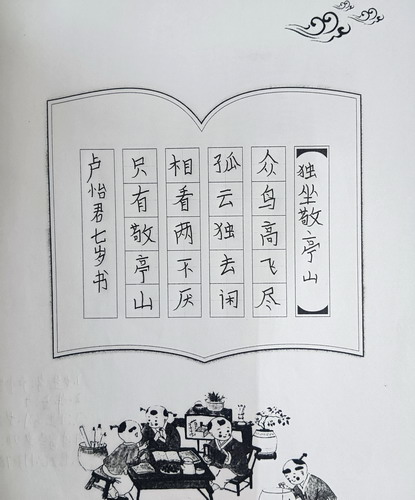 独坐敬亭山
众鸟高飞尽
孤云独去闲
相看两不厌
只有敬亭山
卢怡君七岁书